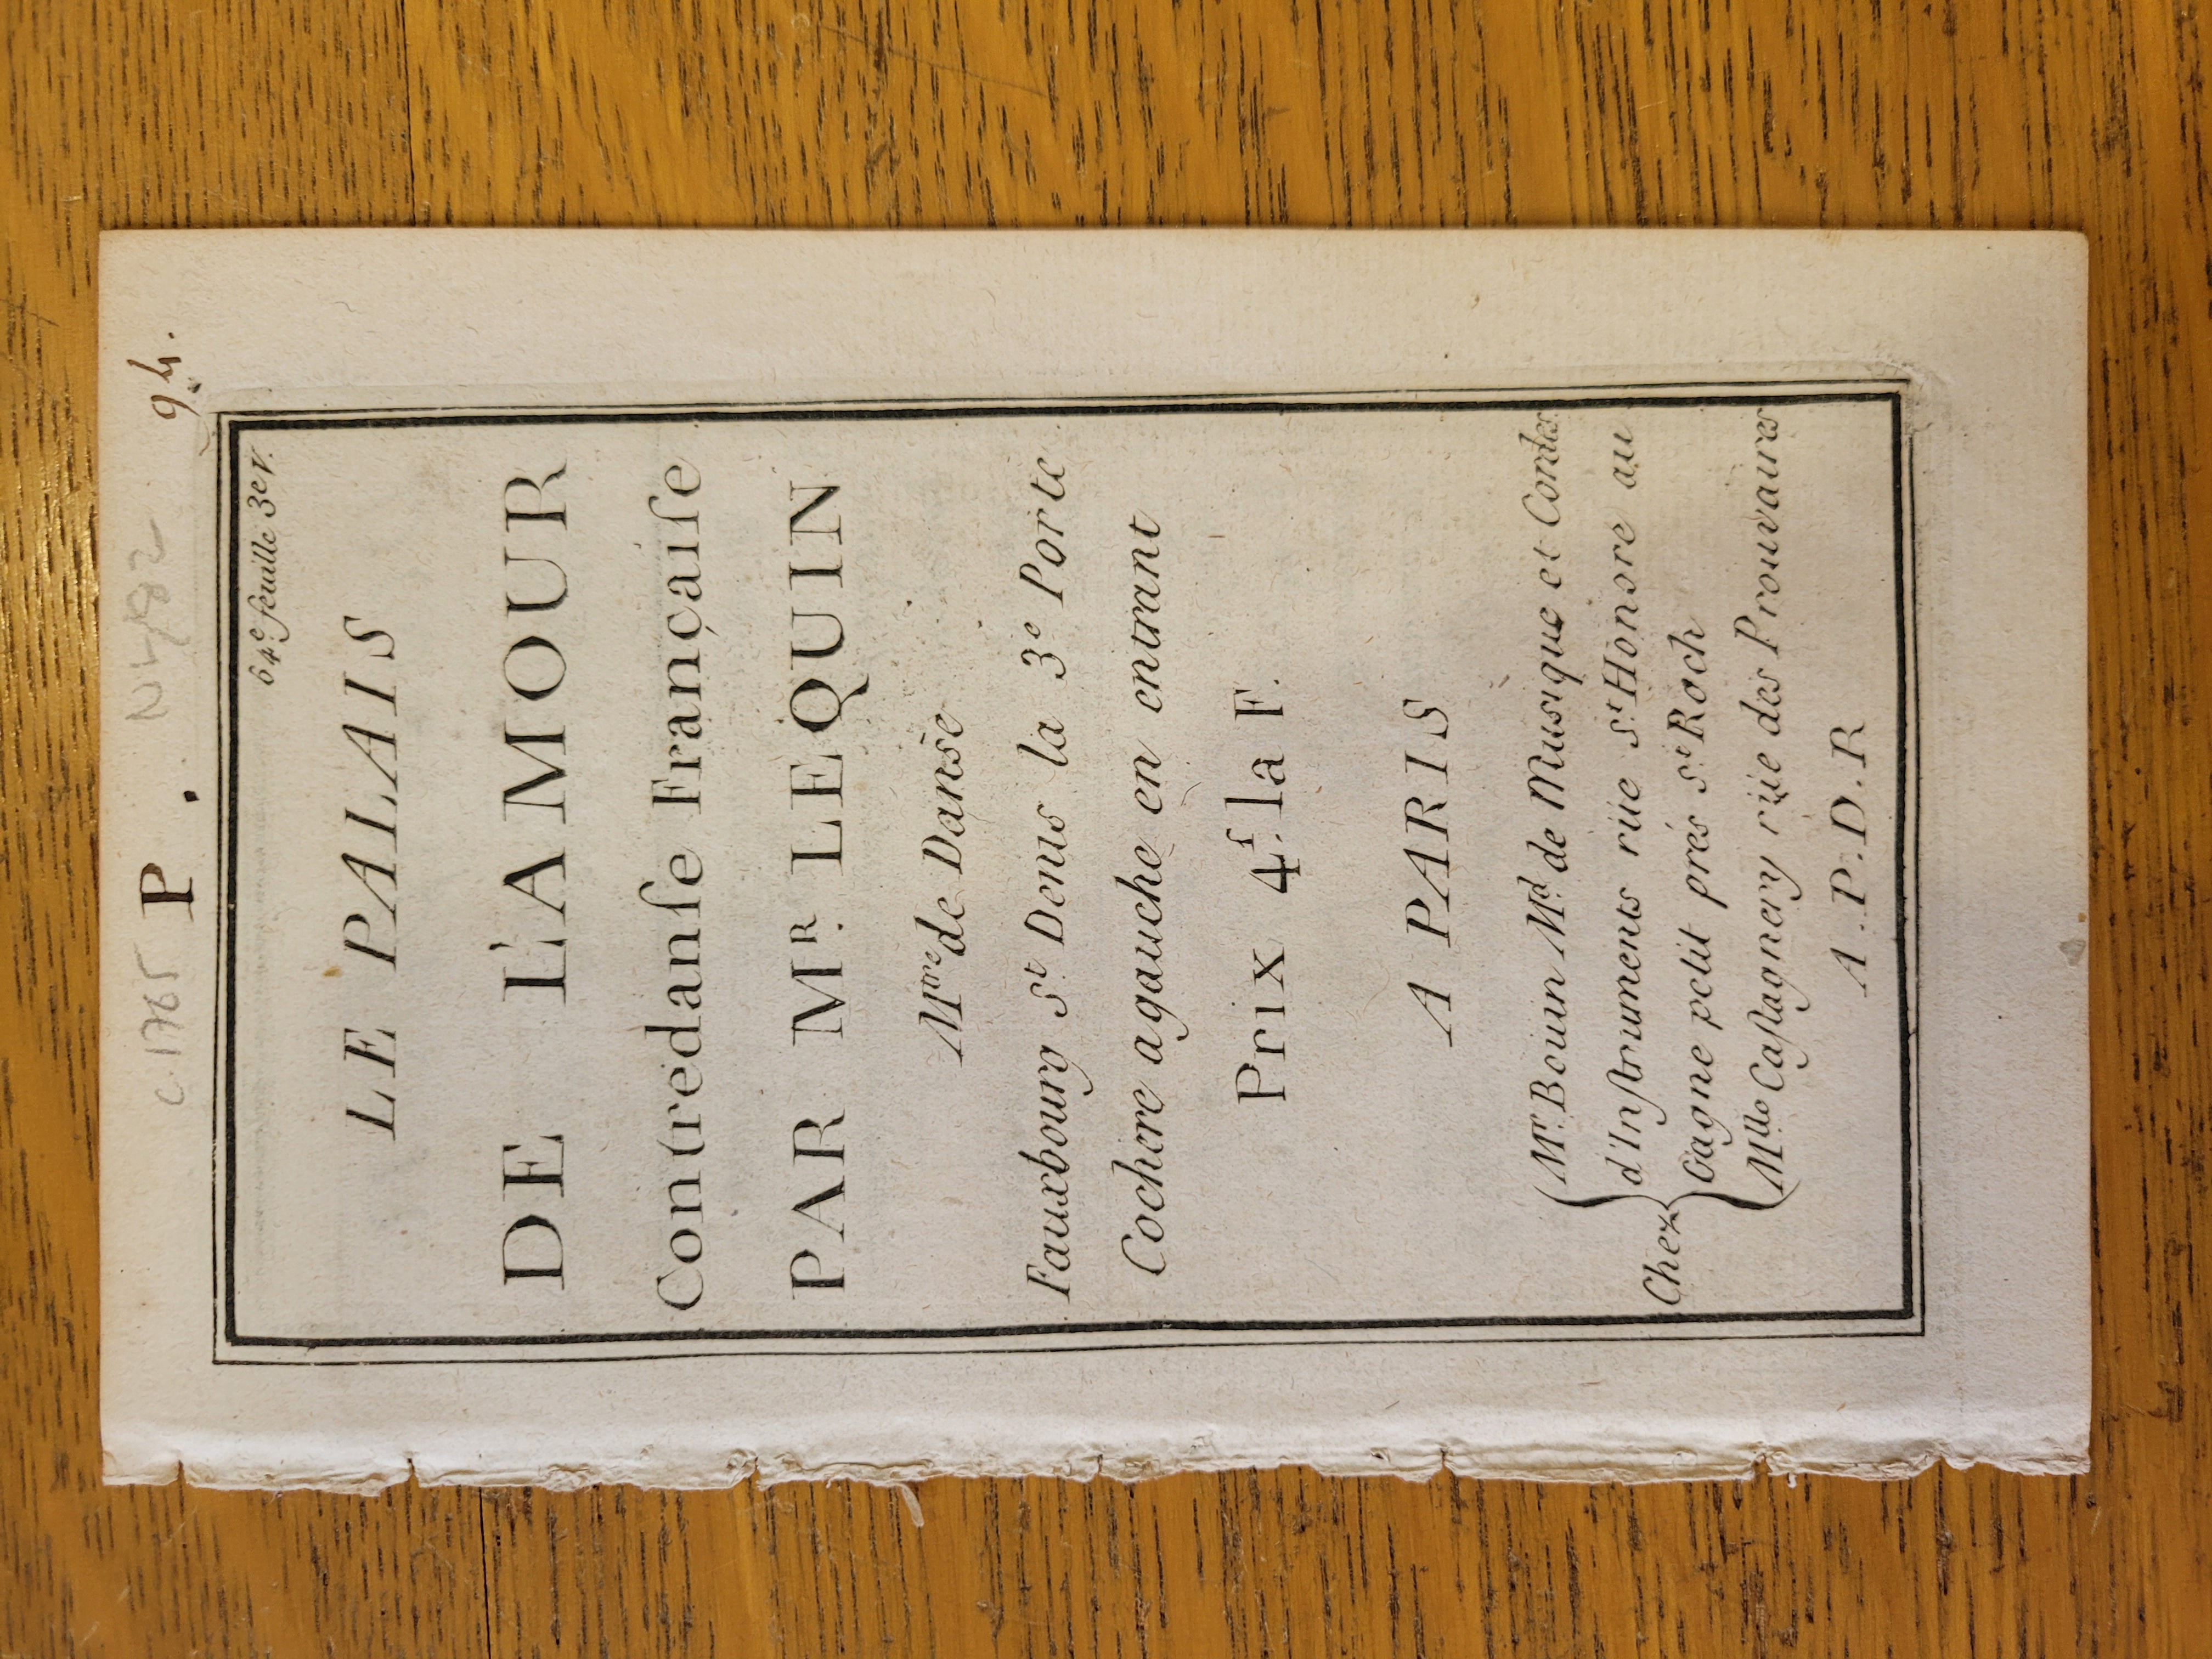 c. 1765 P. 94.
64.e feuille 3.e V.
LE PALAIS
DE L'AMOUR
Contredanſe Françaiſe
PAR M.R LE QUIN
M.re de Danse
Fauxbourg S.t Denis la 3.e Porte
Cochere agauche en entrant
Prix 4.ſ la F.
A PARIS
Chez
M.r Bouin M.d de Musique et Cordes
d'Inſtruments rüe S.t Honore au
Gagne petit prés S.t Roch
M.lle Caſtagnery rüe des Prouvaires
A.P.D.R